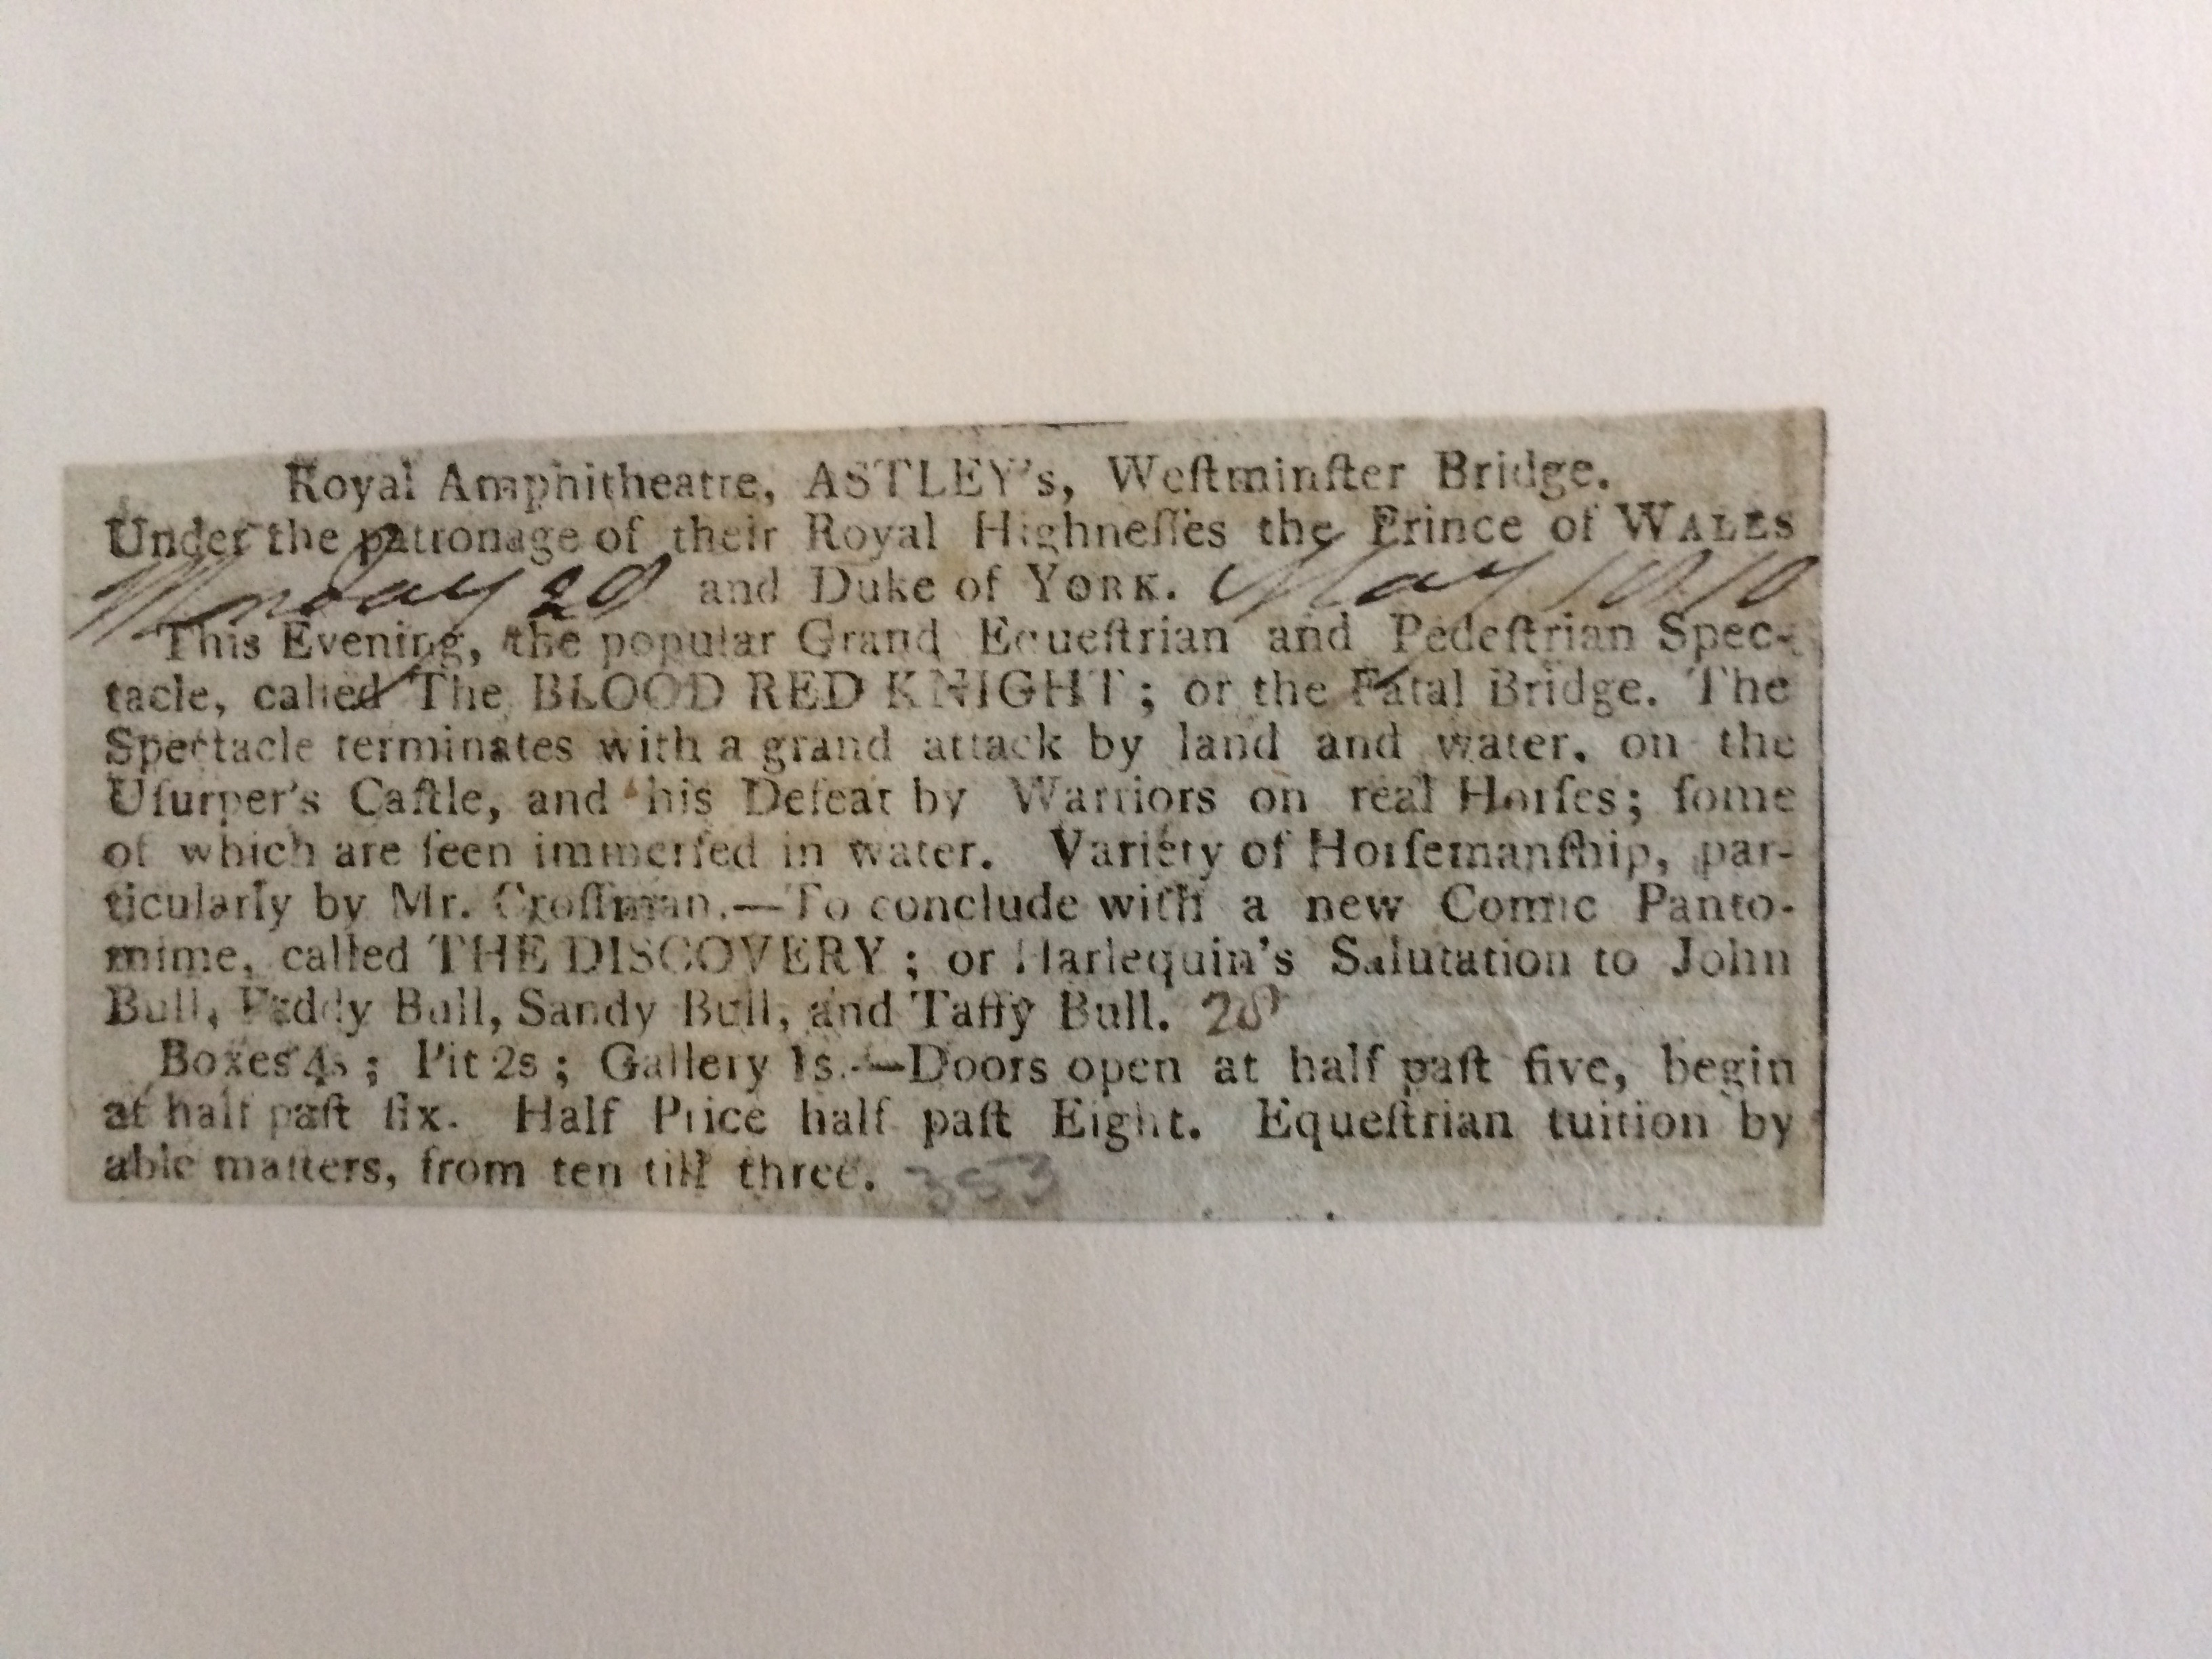 Royal Amphitheatre, ASTLEY's, Weſtminſter Bridge.
Under the patronage of their Royal Highneſſes the Prince of WALES
Monday 20 and Duke of YORK. May 1810
This Evening, the popular Grand Equeſtrian and Pedeſtrian Spec-
tacle, called The BLOOD RED KNIGHT; or the Fatal Bridge. The
Spectacle terminates with a grand attack by land and water, on the
Uſurper's Caſtle, and his Defeat by Warriors on real Horſes; ſome
of which are ſeen immerſed in water. Variety of Horſemanſhip, par-
ticularly by Mr. Croſſman.—To conclude with a new Comic Panto-
mime, called THE DISCOVERY; or Harlequin's Salutation to John
Bull, Paddy Bull, Sandy Bull, and Taffy Bull. 20
Boxes 4s; Pit 2s; Gallery 1s.—Doors open at half paſt five, begin
at half paſt ſix. Half Price half paſt Eight. Equeſtrian tuition by
able maſters, from ten till three. 353